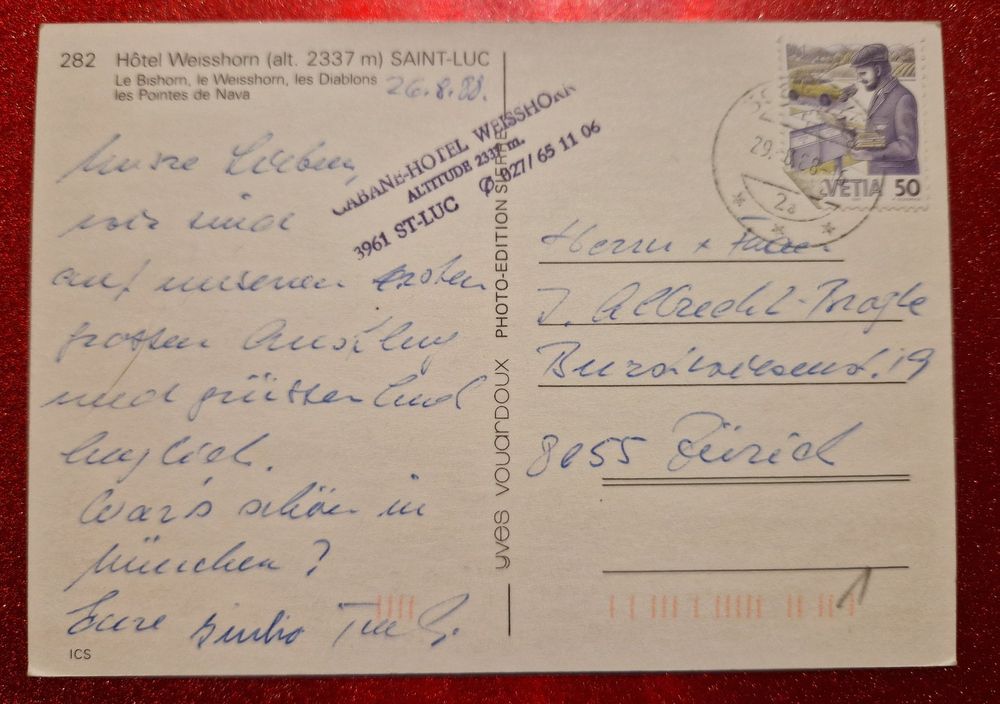 282 Hôtel Weisshorn (alt. 2337 m) SAINT-LUC
Le Bishorn, le Weisshorn, les Diablons
les Pointes de Nava
26.8.88.
CABANE-HOTEL WEISSHORN
ALTITUDE 2337 m.
3961 ST-LUC Ø 027/65 11 06
wir sind
auf unseren ersten
grossen Ausflug
und grüssen Euch
herzlich.
War's schön in
München?
Eure
ICS
yves vouardoux PHOTO-EDITION SIERRE
29.
2a
VETIA 50
Herrn + Frau
J. Albrecht-Brogle
19
8055 Zürich
1